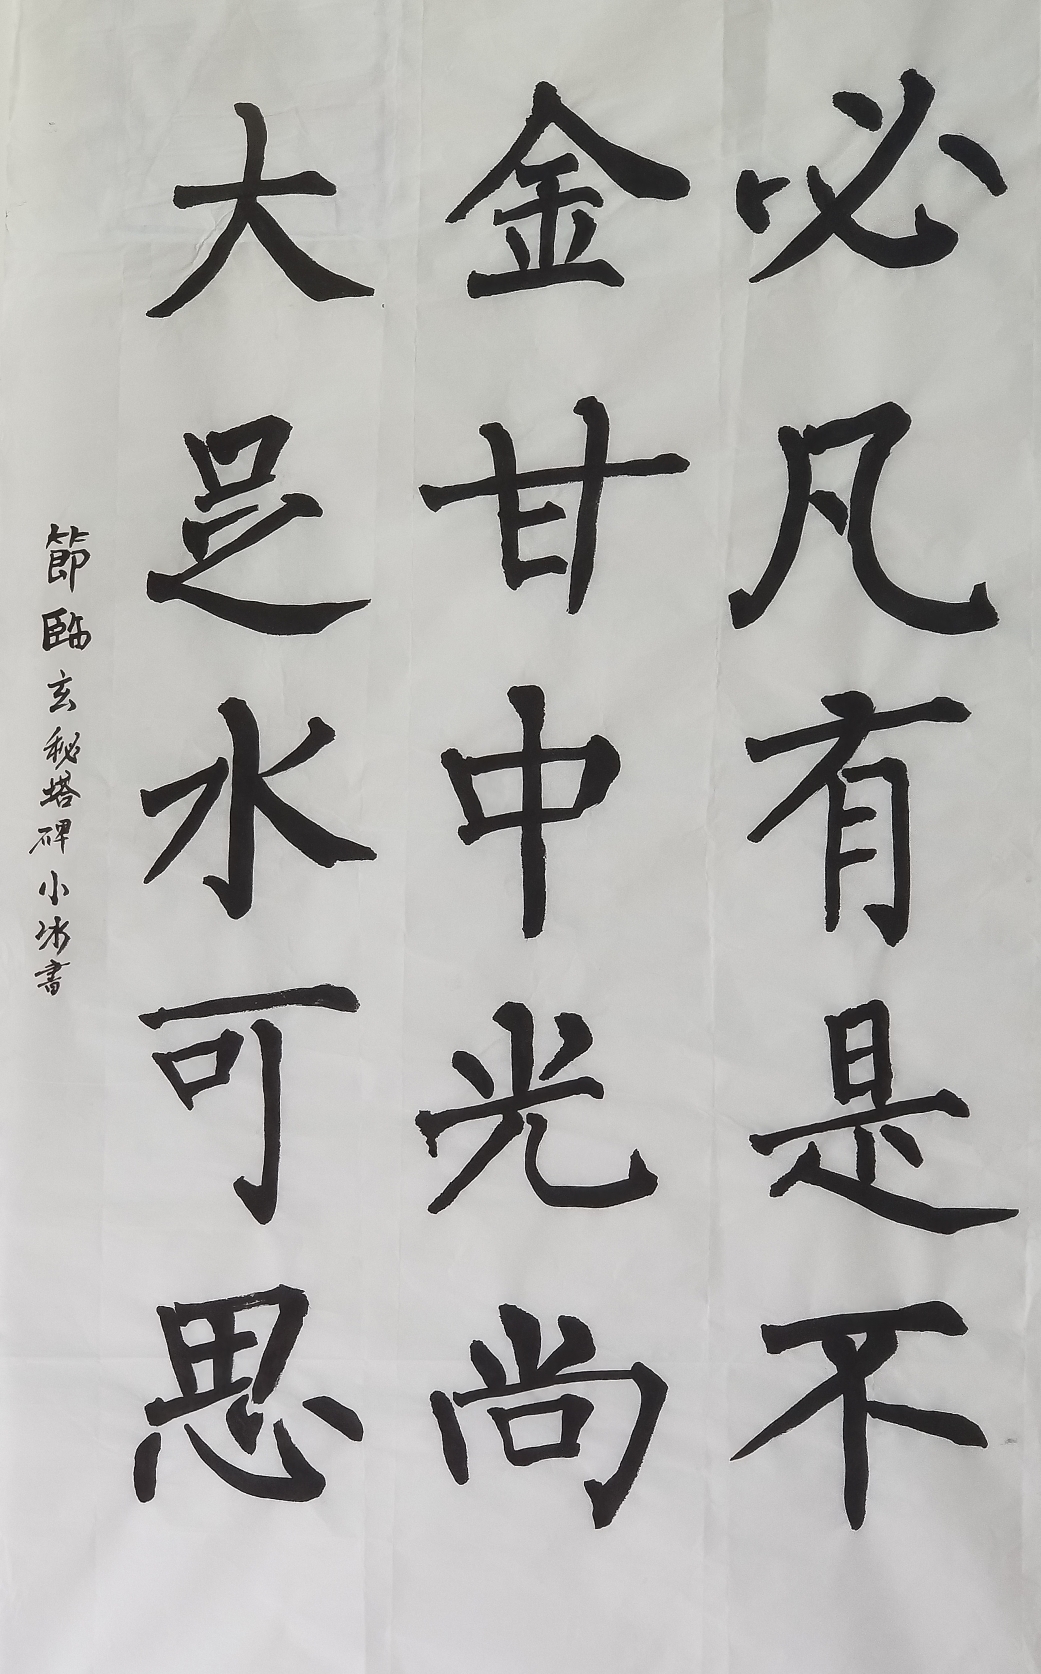 必凡有是不
金甘中光尚
大足水可思
節臨玄秘塔碑小冰書